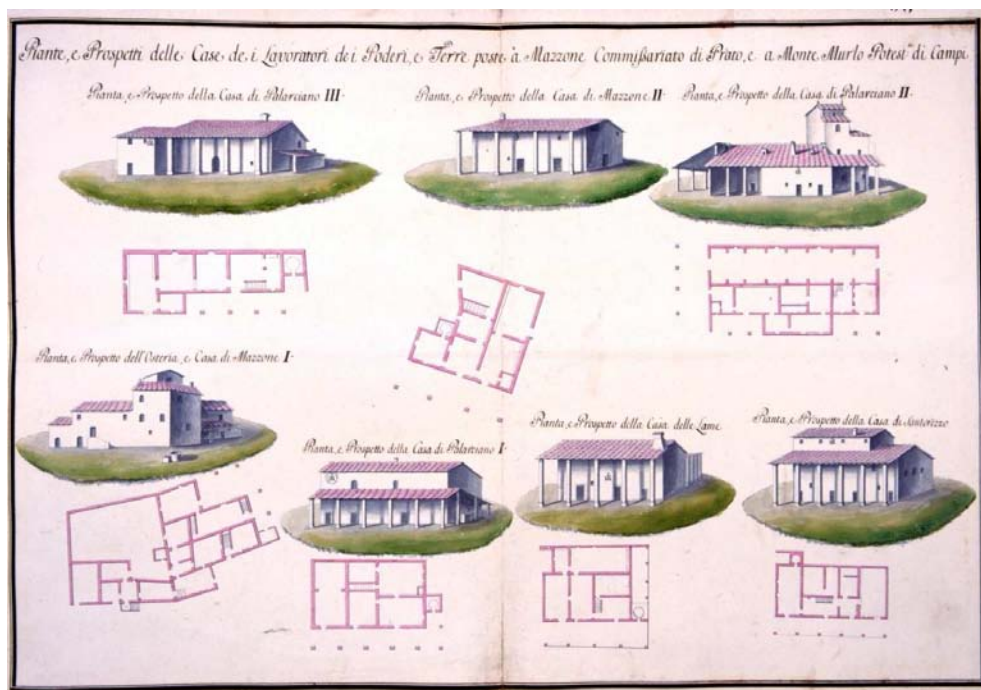 Piante, e Prospetti delle Case de i Lavoratori de i Poderi, e Terre poste à Mazzone Commissariato di Prato, e a Monte Murlo Potest.ª di Campi
Pianta, e Prospetto della Casa di Palarciano III.
Pianta, e Prospetto della Casa di Mazzone II.
Pianta, e Prospetto della Casa di Palarciano II.
Pianta, e Prospetto dell'Osteria, e Casa di Mazzone I.
Pianta, e Prospetto della Casa di Palarciano I.
Pianta, e Prospetto della Casa delle Lame
Pianta, e Prospetto della Casa di